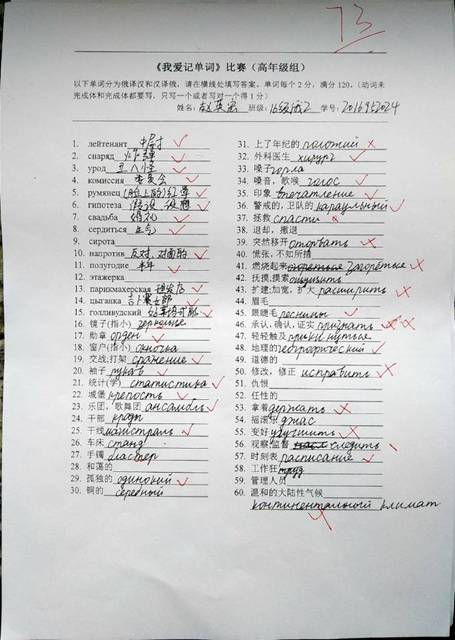 73
《我爱记单词》比赛（高年级组）
以下单词分为俄译汉和汉译俄，请在横线处填写答案。单词每个2分，满分120。（动词未
完成体和完成体都要写，只写一个或者写对一个得1分）
姓名: 赵英宏 班级: 16级俄2 学号:
1. лейтенант 中尉
2. снаряд 炸弹
3. урод 丑八怪
4. комиссия 委员会
5. румянец 脸上的红晕
6. гипотеза 假设
7. свадьба 婚礼
8. сердиться 生气
9. сирота
10. напротив 反对, 对面的
11. полугодие 半年
12. этажерка
13. парикмахерская 理发店
14. цыганка
15. голливудский
16.镜子(指小) зеркальце
17. 勋章 орден
18. 窗户(指小) окночка
19. 交战;打架 сражение
20. 袖子 рукав
21. 统计(学) статистика
22. 城堡 крепость
23. 乐团，歌舞团 ансамбль
24. 干部 кадр
25. 干线 магистраль
26. 车床 станд
27. 手镯
28. 和蔼的
29. 孤独的 одинокий
30. 铜的 серебный
31. 上了年纪的 положий
32. 外科医生 хирург
33. 嗓子 горла
34. 嗓音，歌喉 голос
35. 印象 впечатление
36. 警戒的，卫队的 караульный
37. 拯救 спасти
38. 退却，撤退
39. 突然移开 оторвать
40. 慌张，不知所措
41. 燃烧起来 загореться
42. 抚摸;摸索 ощущить
43. 扩建;加宽，扩大 расширить
44. 眉毛
45. 眼睫毛 ресницы
46. 承认，确认，证实 признать
47. 轻轻触及
48. 地理的 географический
49. 道德的
50. 修改，修正 исправить
51. 仇恨
52. 任性的
53. 拿着 держать
54. 摇滚乐 джас
55. 变好 улучшить
56. 观察;监督 следить
57. 时刻表 расписание
58. 工作狂 труд
59. 管理人员
60. 温和的大陆性气候
континентальный климат